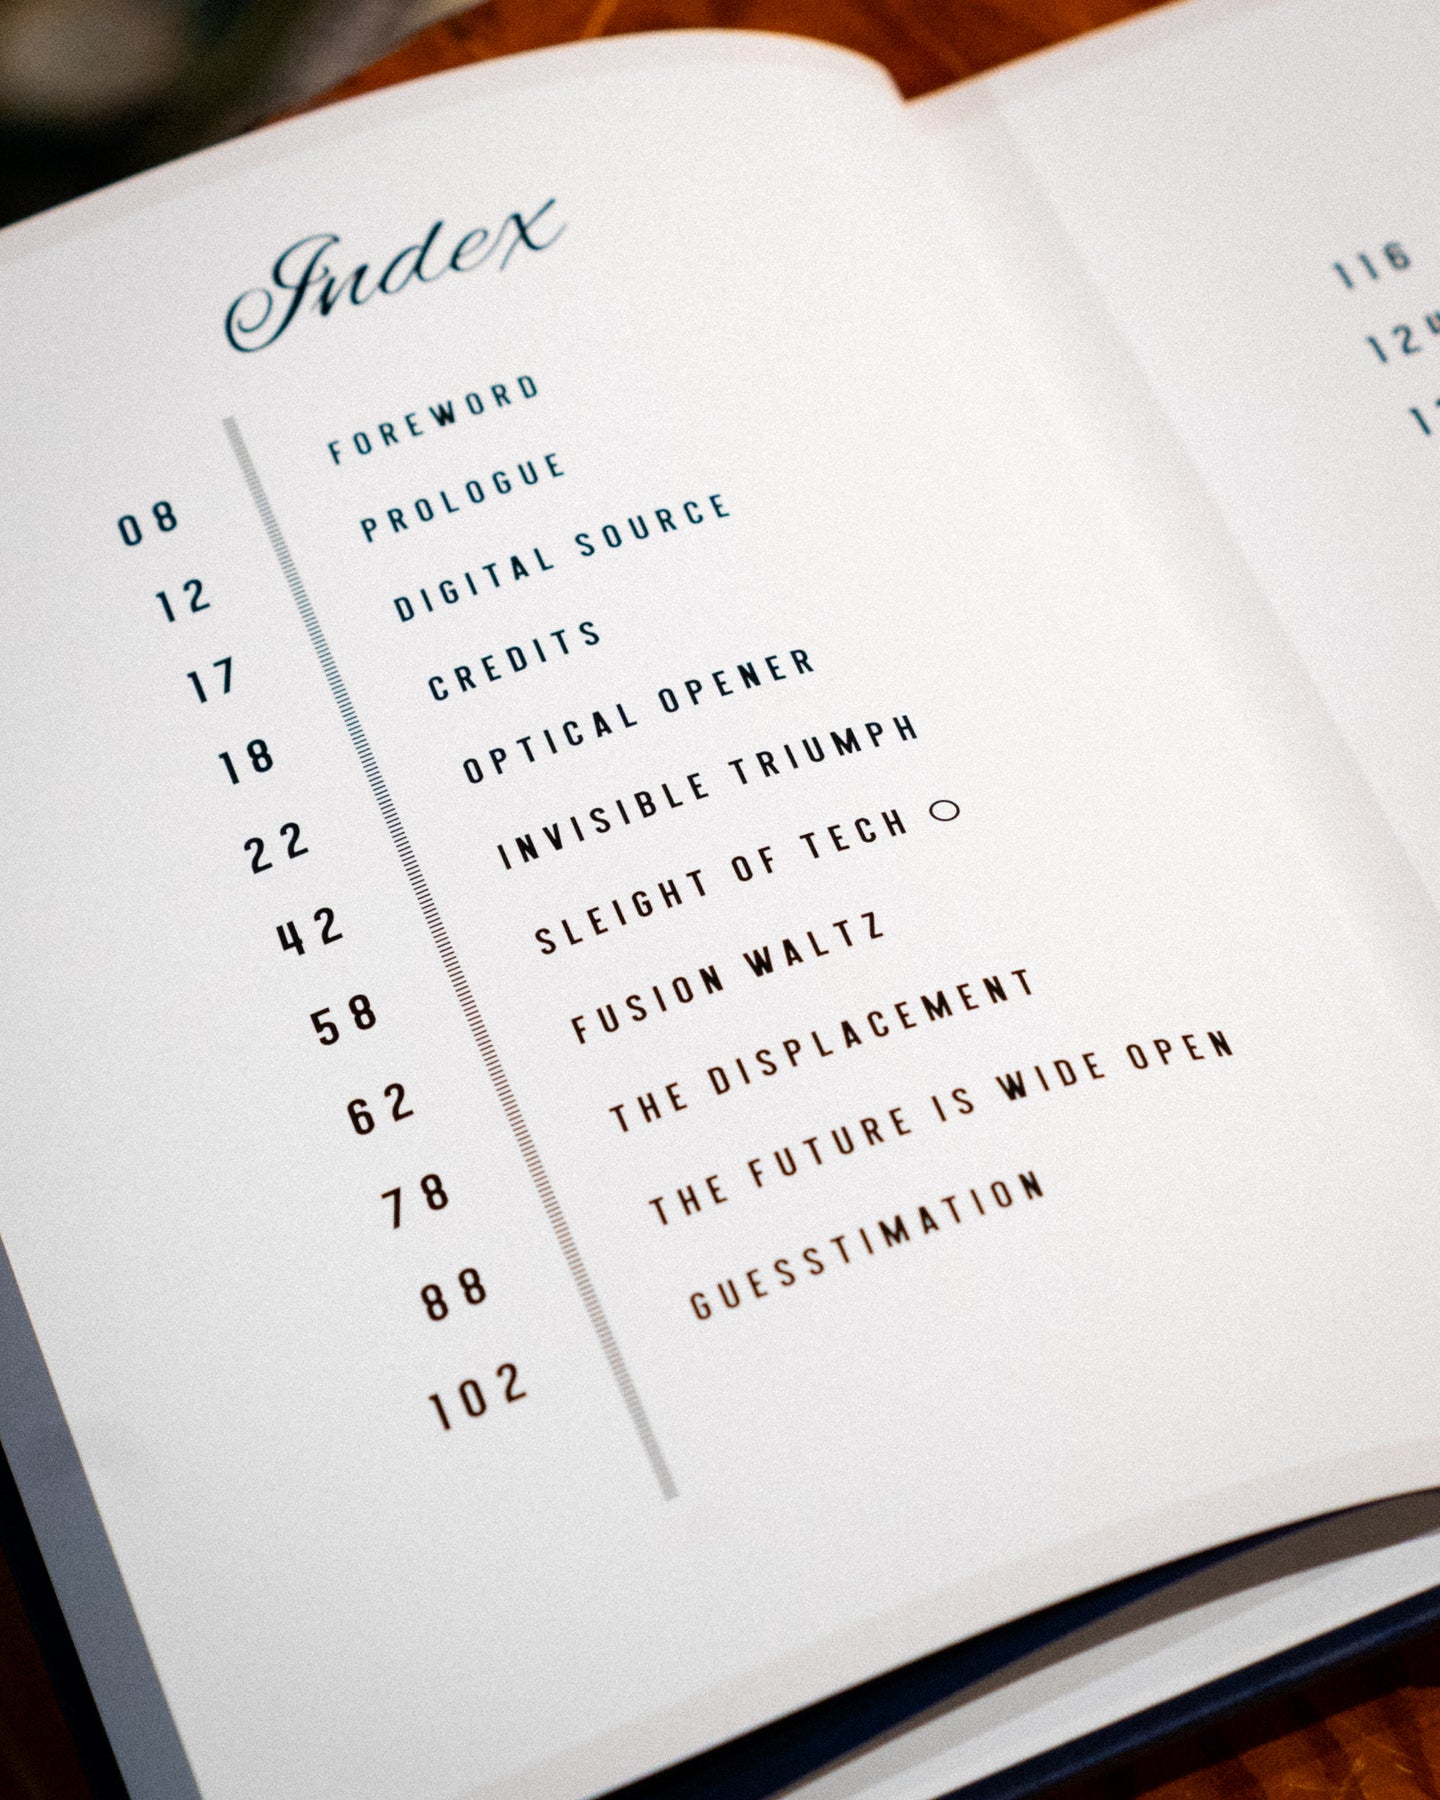 Index
08 FOREWORD
12 PROLOGUE
17 DIGITAL SOURCE
18 CREDITS
22 OPTICAL OPENER
42 INVISIBLE TRIUMPH
58 SLEIGHT OF TECH
62 FUSION WALTZ
78 THE DISPLACEMENT
88 THE FUTURE IS WIDE OPEN
102 GUESSTIMATION
116